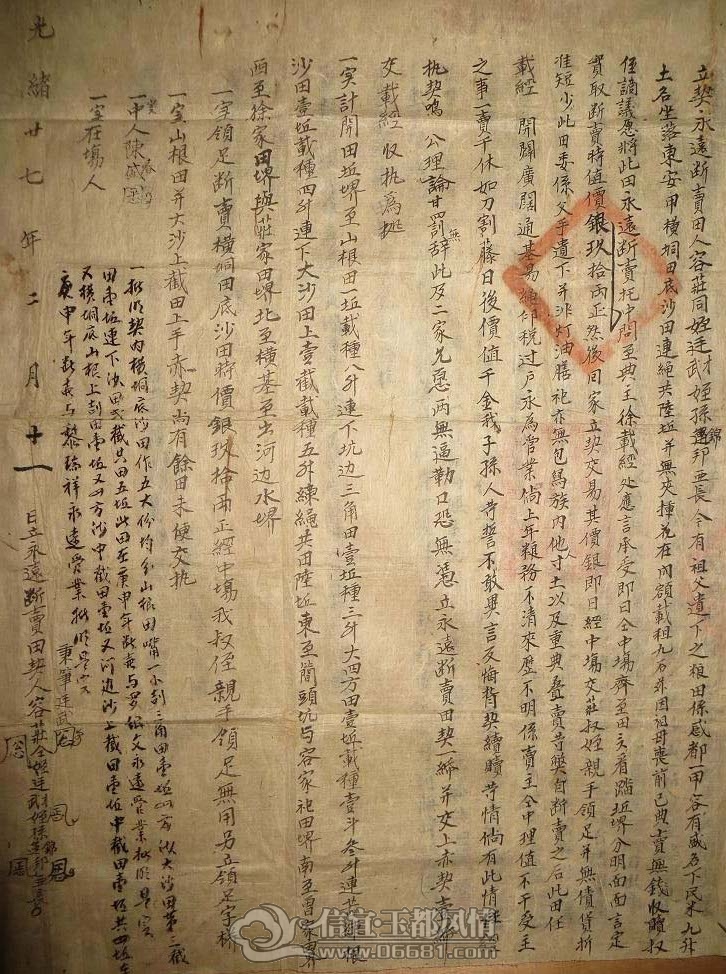 立契永遠断賣田人容莊同姪廷武財姪孫錦邦亜長今有祖父遺下之粮田係感都一甲容有盛名下民米九升
土名坐落東安甲橫垌田底沙田連繩共陸坵并無夾揷花在內額載租九石米因祖母喪前已典賣無錢收贖叔
侄謫議愿將此田永遠断賣托中問至典主徐載經處應言承受即日仝中塲齊至田立看踏坵界分明面面言定
實取断賣時值價銀玖拾両正然後回家立契交易其價銀即日經中塲交莊叔姪親手領足并無債貨折
准短少此田委係父手遺下并非灯油膳祀亦無包為族內他寸土以及重典叠賣苛獘自断賣之后此田任
載經開闢廣闊通基易推仰稅过户永為管業倘上年粮務不清來歷不明係賣主仝中理值不干受主
之事一賣千休如刀割藤日後價值千金我子孫人苛誓不敢異言反悔背契續贖苛情倘有此情
执契鳴公理論甘罰無辞此及二家允愿両無逼勒口恐無憑立永遠断賣田契一紙并交上赤契壱
交載經收执為據
一实計開田坵界至山根田一坵載種八升連下坑边三角田壹坵載種三升大四方田壹坵載種壹斗叁升連
沙田壹坵載種四升連下大沙田上壹截載種五升綠繩共田陸坵東至蕳頭坑与容家祀田界南至曾家田界
西至徐家田界與莊家田界北至橫基至出河边水界
一实領足断賣橫垌田底沙田時價銀玖拾両正經中塲我叔侄親手領足無用另立領足字據
一实山根田并大沙上截田上手赤契尚有餘田未便交执
一实中人陳
一实在塲人
一批明契內橫垌底沙田作五大份均分山根田嘴一小割三角田壹坵四方沙大沙田第二截
田壹坵連下沙田弍截共田五坵此田在庚申年断賣与羅紹文永遠管業批明是实
又橫垌底山根上割田壹坵又四方沙中截田壹坵又河边沙上截田壹坵中截田壹坵共四坵在
庚申年断賣与黎瑞祥永遠管業批明是实
秉筆廷武
光緒廿七年二月十一日立永遠断賣田契人容莊仝姪廷財姪孫廷邦亜長
信宜玉都风情
www.06681.com